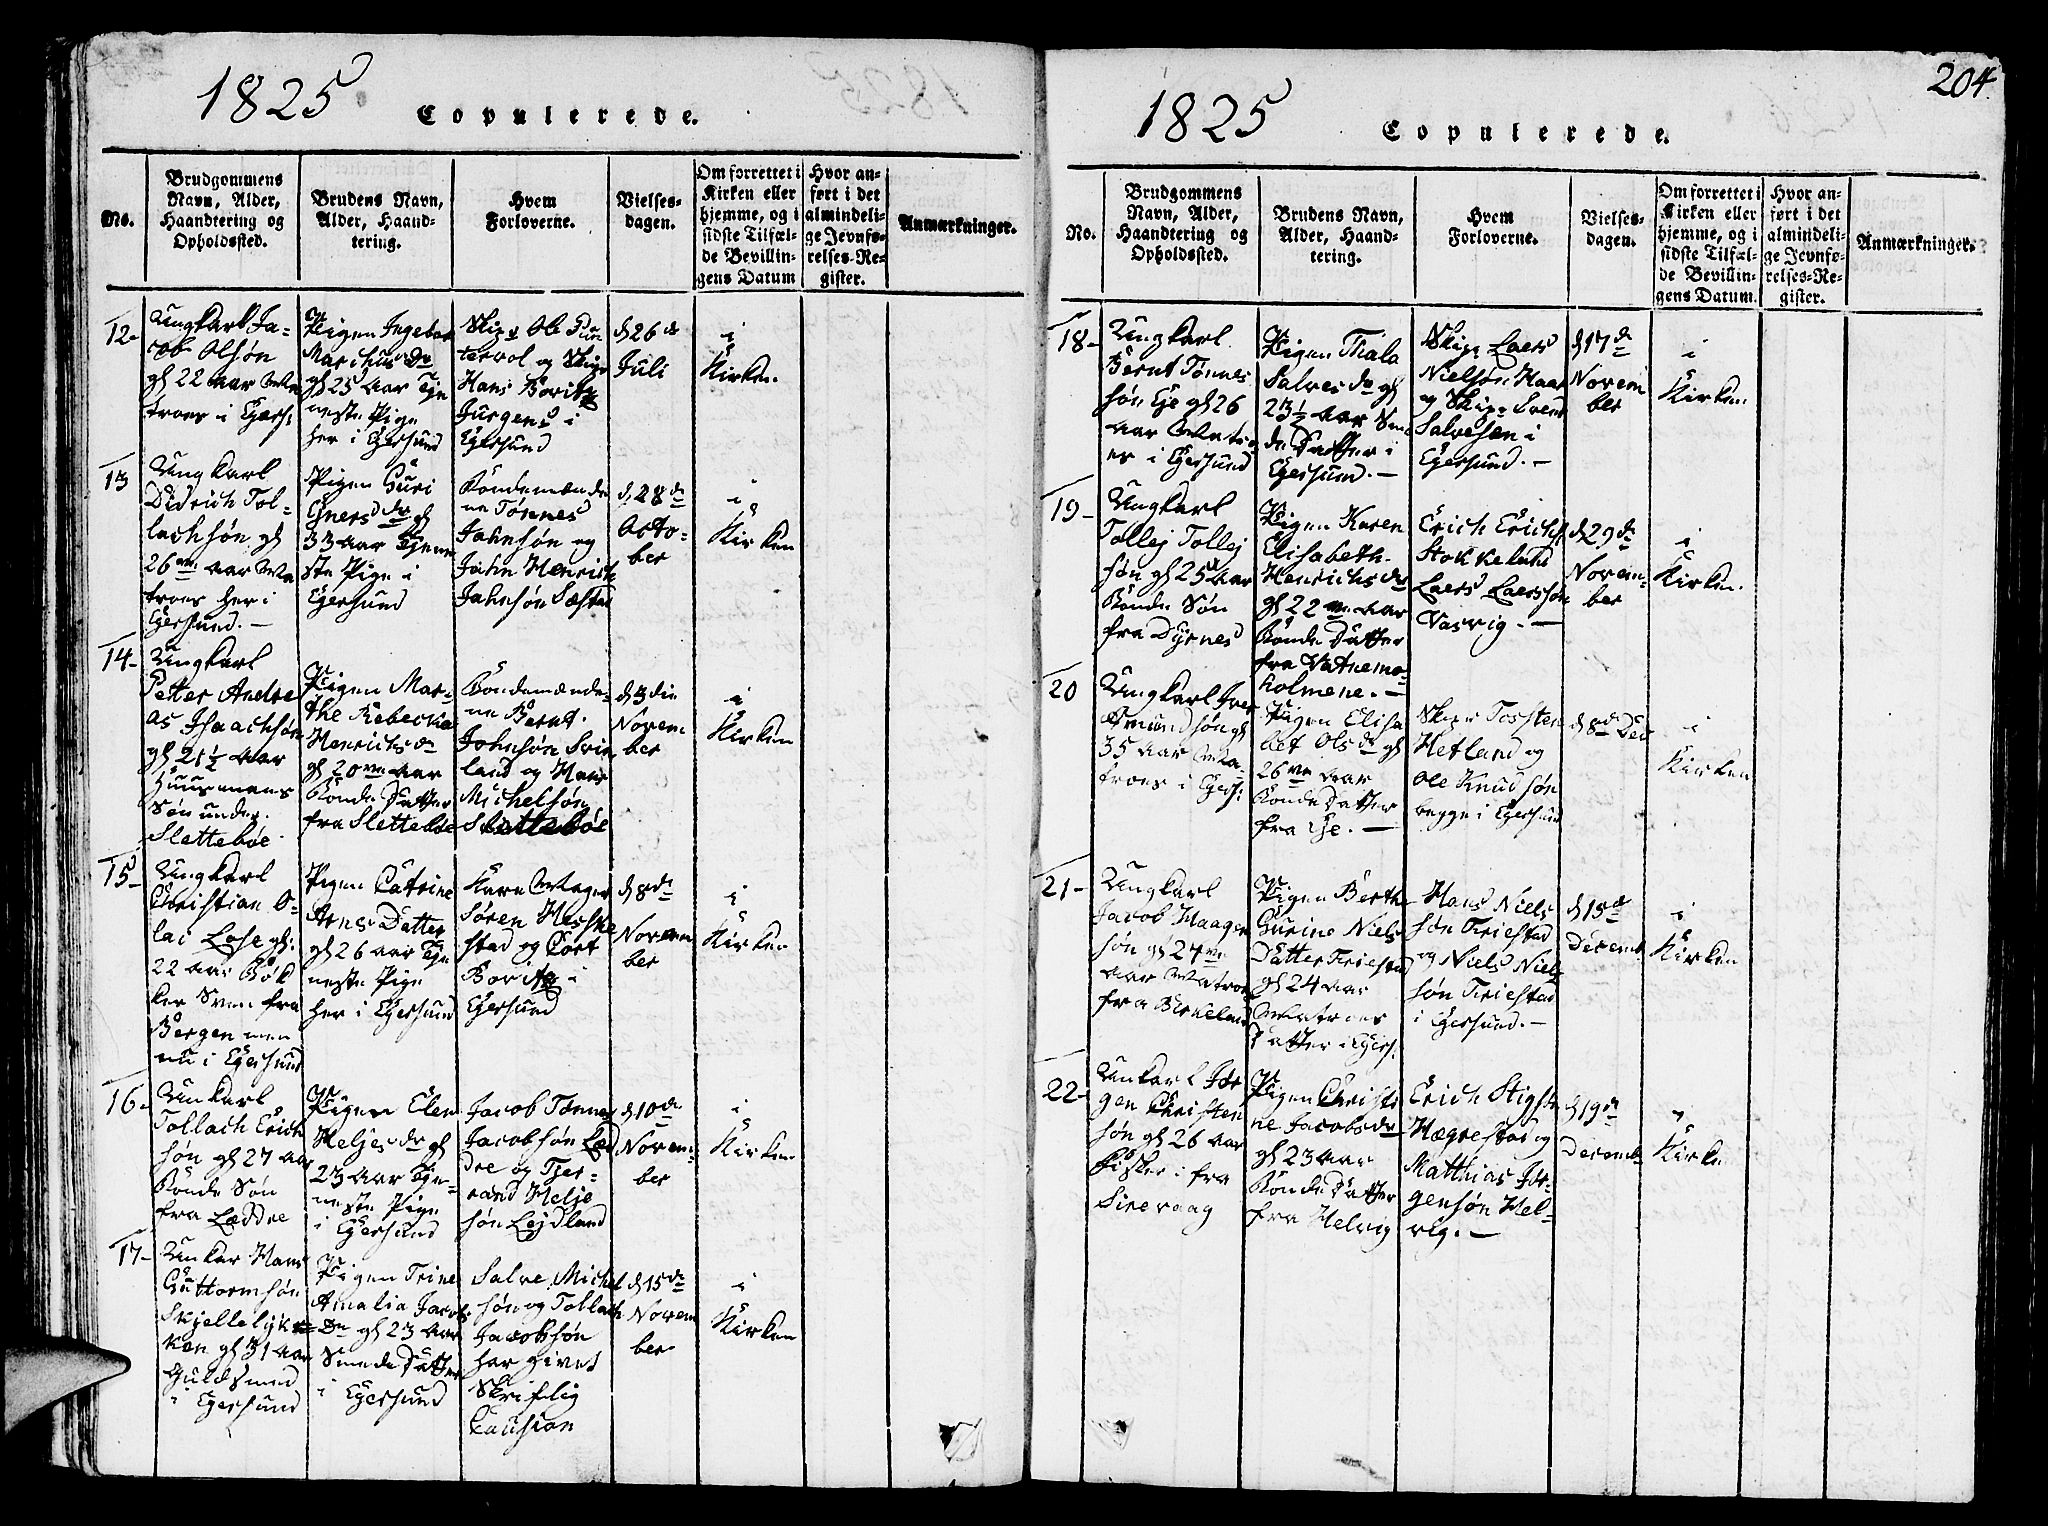 1825 Copulerede.
No.
Brudgommens
Navn, Alder,
Haandtering og
Opholdssted.
Brudens Navn,
Alder, Haand-
tering.
Hvem
Forloverne.
Vielses-
dagen.
Om forrettet i
Kirken eller
hjemme, og i
sidste Tilfæl-
de Bevillin-
gens Datum
Hvor an-
ført i det
almindeli-
ge Jevnfø-
relses-Re-
gister.
Anmærkninger.
12-
Ungkarl Ja-
cob Olsøn
gl 22 aar Ma
troes i Egers:
Pigen Ingebor
Marchusdr
gl 25 Aar Tje
neste Pige
her i Egersund
Skipr Ole Pun
tervol og Skipr
Hans Boritz
Jurgens i
Egersund
d 26de
Juli
i
Kirken.
13
Ungkarl
Didrich Tol-
lachsøn gl
26 aar Ma
troes her i
Egersund. -
Pigen Guri
Gnersdr gl
33 aar Tjene
ste Pige i
Egersund
Bondemænde
ne Tønnes
Jahnsøn og
Jahn Henrich
Jahnsøn Sæstad
d, 28de
Octo-
ber
i
Kirken
14-
Ungkarl
Petter Andre
as Isaachsøn
gl 21½ aar
Huusmans
Søn under
Slettebøe
Pigen Mar-
the Rebecka
Henrichsdr
gl 20 aar
Bonde Datter
fra Slettebøe
Bondemænde-
ne Bernt
Johnsøn Svin
land og Hans
Michelsøn
Slettebøe
d 3die
Novem
ber
i
Kirken
15-
Ungkarl
Christian O-
lai Lose gl:
22 aar Bøk
ker Sven fra
Bergen men
nu i Egersund
Pigen Catrine
Arns Datter
gl 26 aar Tje
neste Pige
her i Egersund
Søren Hesske
stad og Cort
Boritz i
Egersund
d 8de
Novem
ber
i
Kirken
16-
Unkarl
Tollach Erich
søn gl 27 aar
Bonde Søn
fra Læddre
Pigen Elen
Heljesdr gl
23 aar Tje-
neste Pige
i Egersund
Jacob Tønnes
Jacobsøn Læd
dre og Tjer-
rand Helje
søn Lejdland
d 10de
Novem-
ber
i
Kirken
17-
Unkar Hans
Guttormsøn
Skjellelyk
ken gl 31 aar
Guldsmed
i Egersund
Pigen Trine
Amalia Jacobs
Dr gl 23 aar
Smede Datter
i Egersund
Salve Michel
søn og Tollach
Jacobsøn
har givet
Skriflig
Caution
d 15de
Novem
ber
i
Kirken
1825 Copulerede. 204.
No.
Brudgommens
Navn, Alder,
Haandtering og
Opholdssted.
Brudens Navn,
Alder, Haand-
tering.
Hvem
Forloverne.
Vielses-
dagen.
Om forrettet i
Kirken eller
hjemme, og i
sidste Tilfæl-
de Bevillin-
gens Datum.
Hvor an-
ført i det
almindeli-
ge Jevnfø-
relses-Re-
gister.
Anmærkninger.
18-
Ungkarl
Bernt Tønnes
søn Eje gl 26
aar Matro
es i Egersund
Pigen Thala
Salvesdr gl
23½ aar Sme
de Datter i
Egersund. -
Skipr Laers
Nielsøn Haar
og Skipr Svend
Salvesen i
Egersund. -
d 17de
Novem
ber
i
Kirken
19-
Ungkarl
Tollej Tollej
søn gl 25 aar
Bonde Søn
fra Dyrnes
Pigen Karen
Elisabeth
Henrichsdr
gl 22 aar
Bonde Datter
fra Vatnemo-
holmene. -
Erich Erichs
Stokkelund
Laers Laerssøn
Vasvig. -
d 29de
Novem-
ber
i
Kirken.
20
Ungkarl Iver
Omundsøn gl
35 aar Ma-
troes i Egers:
Pigen Elisa
bet Olsdr gl
26 aar
Bonde Datter
fra Eje. -
Skipr Tosten
Hetland og
Ole Knudsøn
begge i Egersund
d 8de Dec
i
Kirken
21-
Ungkarl
Jacob Haagen
søn gl 27
aar Matroes
fra Birkeland
Pigen Berthe
Gurine Niels
Datter Friestad
gl 24 aar
Matroes
Datter i Egers:
Hans Niels
søn Friestad
og Niels Niels
søn Friestad
i Egersund. -
d 15de
Decemb
i
Kirken
22-
Unkarl Jør
gen Christen
søn gl 26 aar
Fisker i fra
Sirevaag
Pigen Christi
ne Jacobsdr
gl 23 aar
Bonde Datter
fra Helvig
Erich Stigsøn
Hægrestad og
Matthias Jør-
gensøn Hel-
vig. -
d 19de
Decemb
i
Kirken